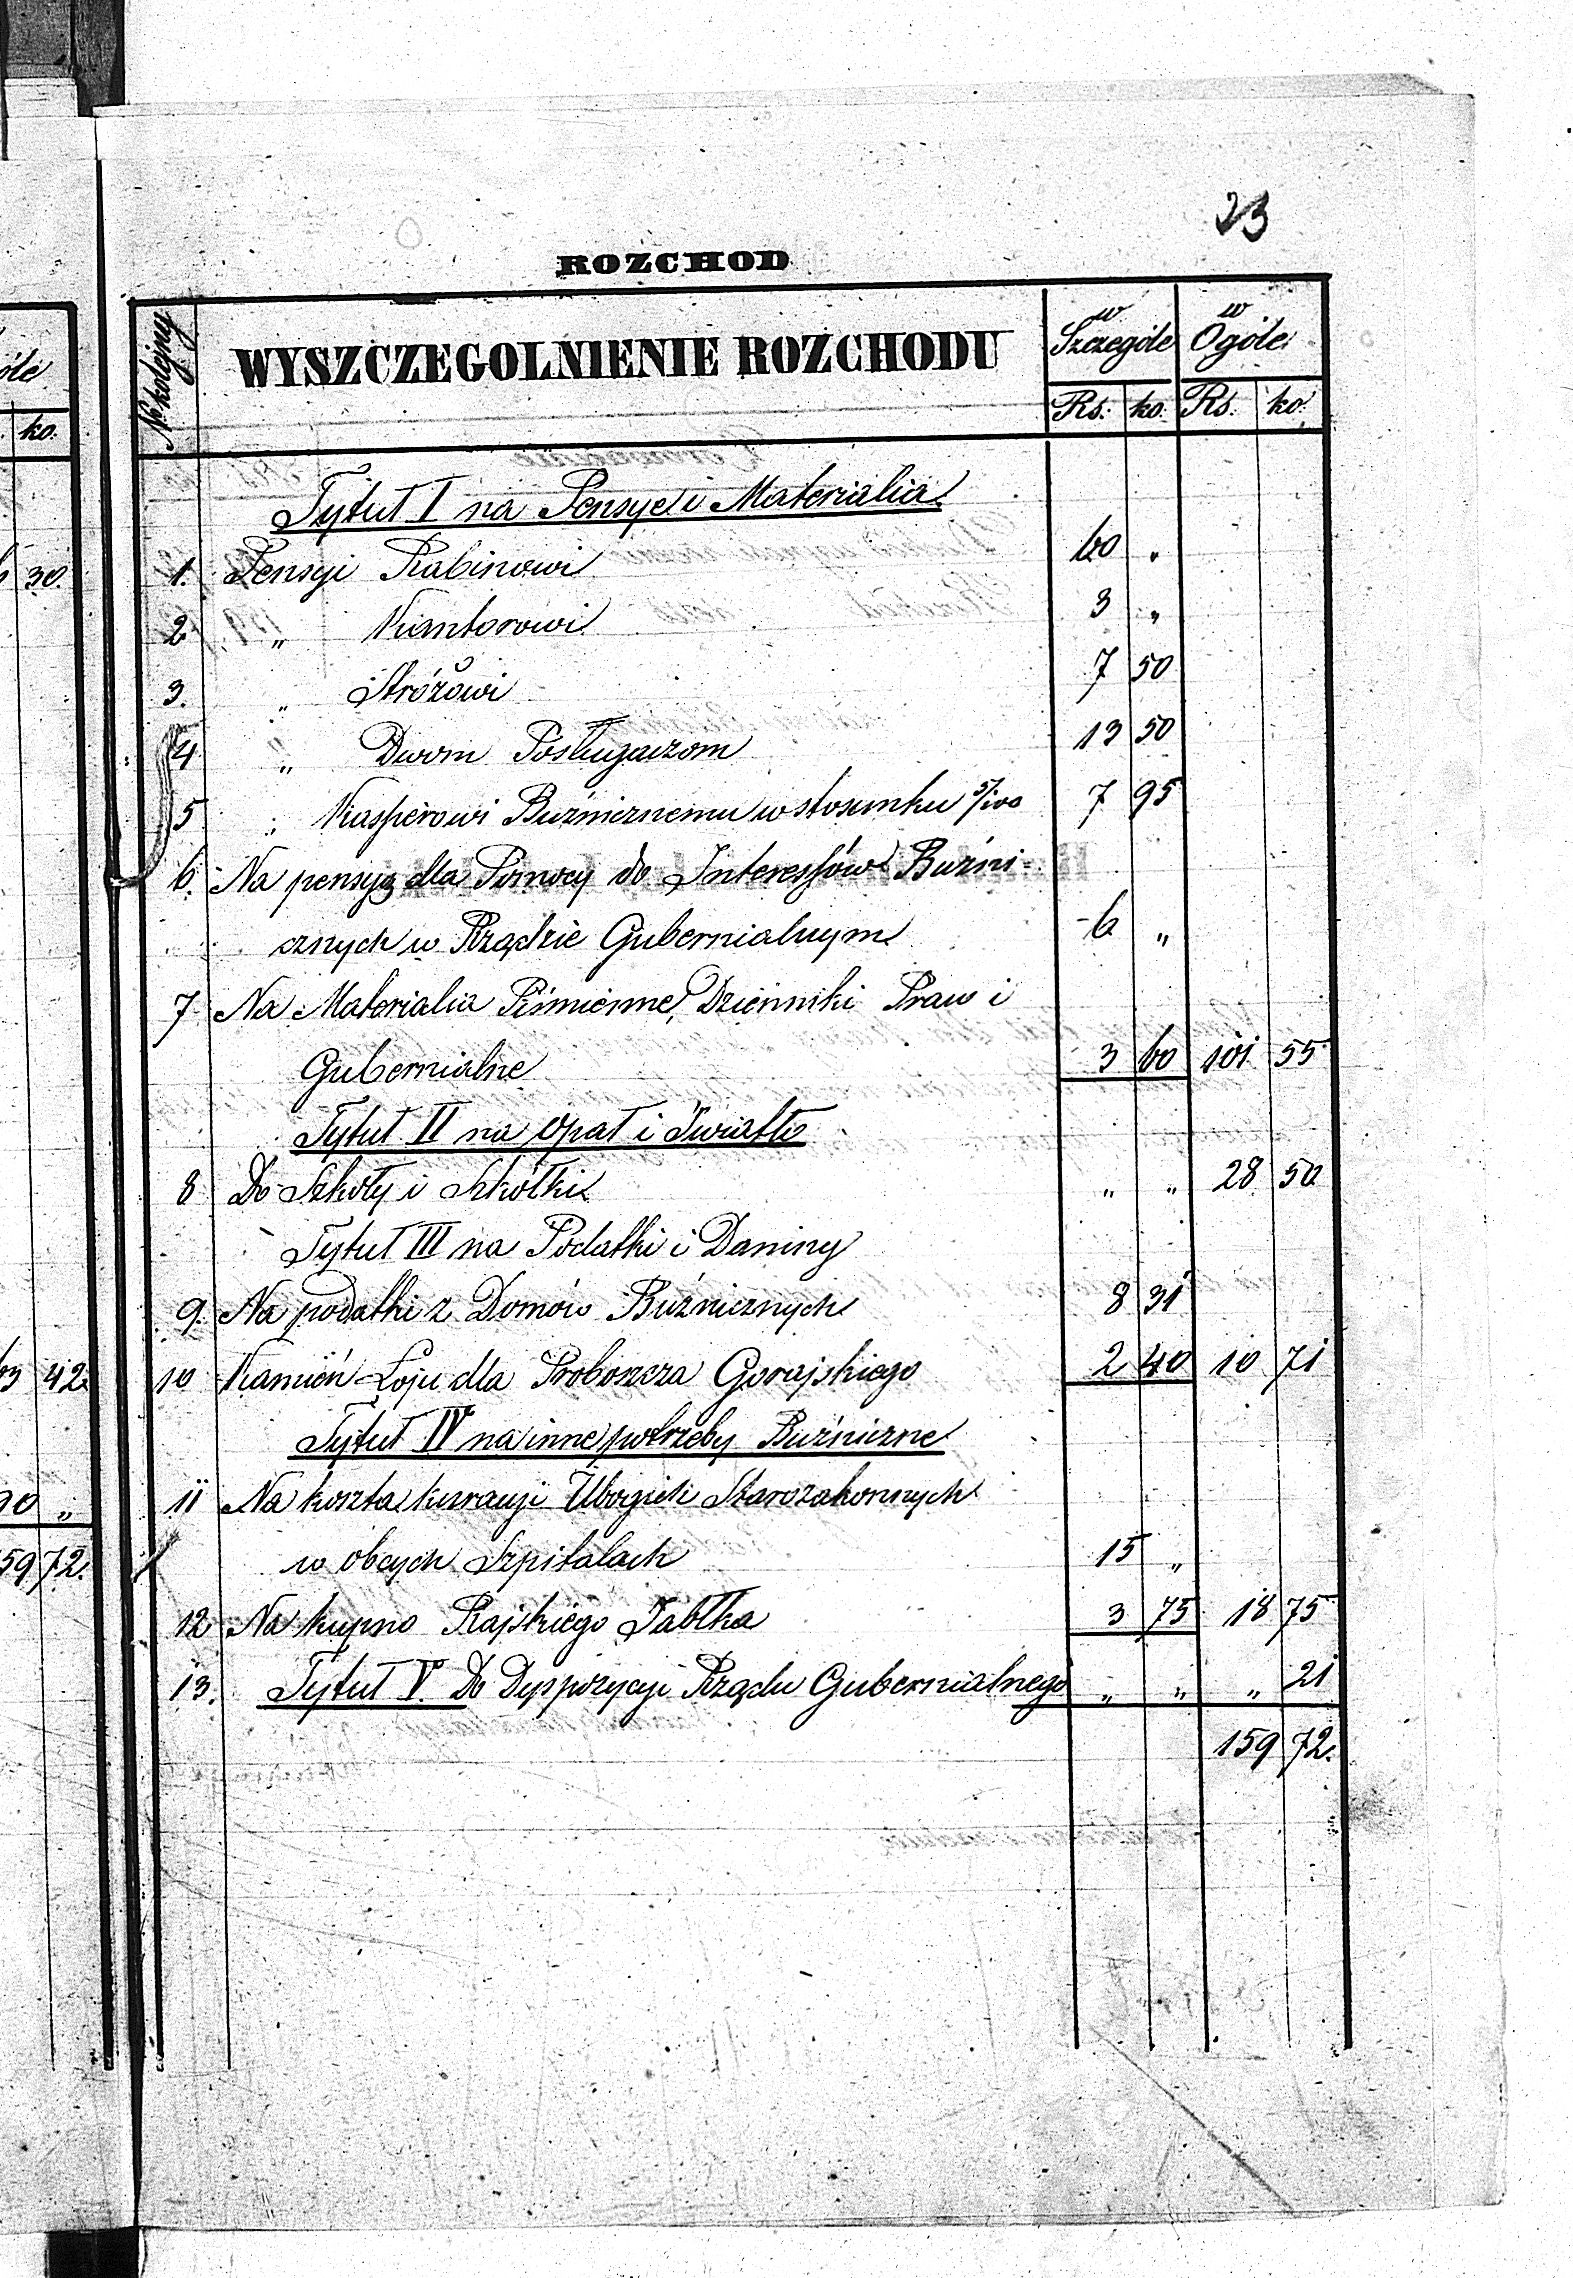 23
ROZCHOD
№ kolejny
WYSZCZEGOLNIENIE ROZCHODU
w Szczególe
w Ogóle
Rs. ko. Rs. ko.
Tytuł I na Pensye i Materialia
1. Pensyi Rabinowi 60 „
2 „ Kantorowi 3 „
3. „ Stróżowi 7 50
4 „ Dwom Posługaczom 13 50
5 „ Kasyerowi Buźnicznemu w stosunku 5/100 7 95
6. Na pensyę dla Pomocy do Interessów Buźni-
cznych w Rządzie Gubernialnym 6 „
7 Na Materialia Piśmienne, Dzienniki Praw i
Gubernialne 3 60 101 55
Tytuł II na Opał i Światło
8 Do Szkoły i Szkółki „ „ 28 50
Tytuł III na Podatki i Daniny
9. Na podatki z Domów Buźnicznych 8 31
10 Kamień Łoju dla Proboszcza Gorajskiego 2 40 10 71
Tytuł IV na inne potrzeby Buźniczne
11 Na koszta kuracyi Ubogich Starozakonnych
w obcych Szpitalach 15 „
12 Na kupno Rajskiego Jabłka 3 75 18 75
13. Tytuł V. Do Dyspozycyi Rządu Gubernialnego „ „ „ 21
159 72.
óle
ko.
30.
42.
„
59 72.